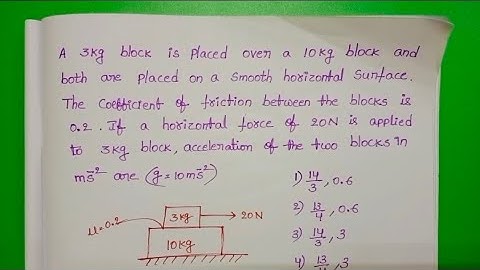 A 3kg block is placed over a 10kg block and
both are placed on a smooth horizontal surface.
The coefficient of friction between the blocks is
0.2. If a horizontal force of 20N is applied
to 3kg block, acceleration of the two blocks in
ms⁻² are (g=10ms⁻²)
1) 14/3, 0.6
2) 13/4, 0.6
3) 14/3, 3
4) 13
μ=0.2
3kg
20N
10kg